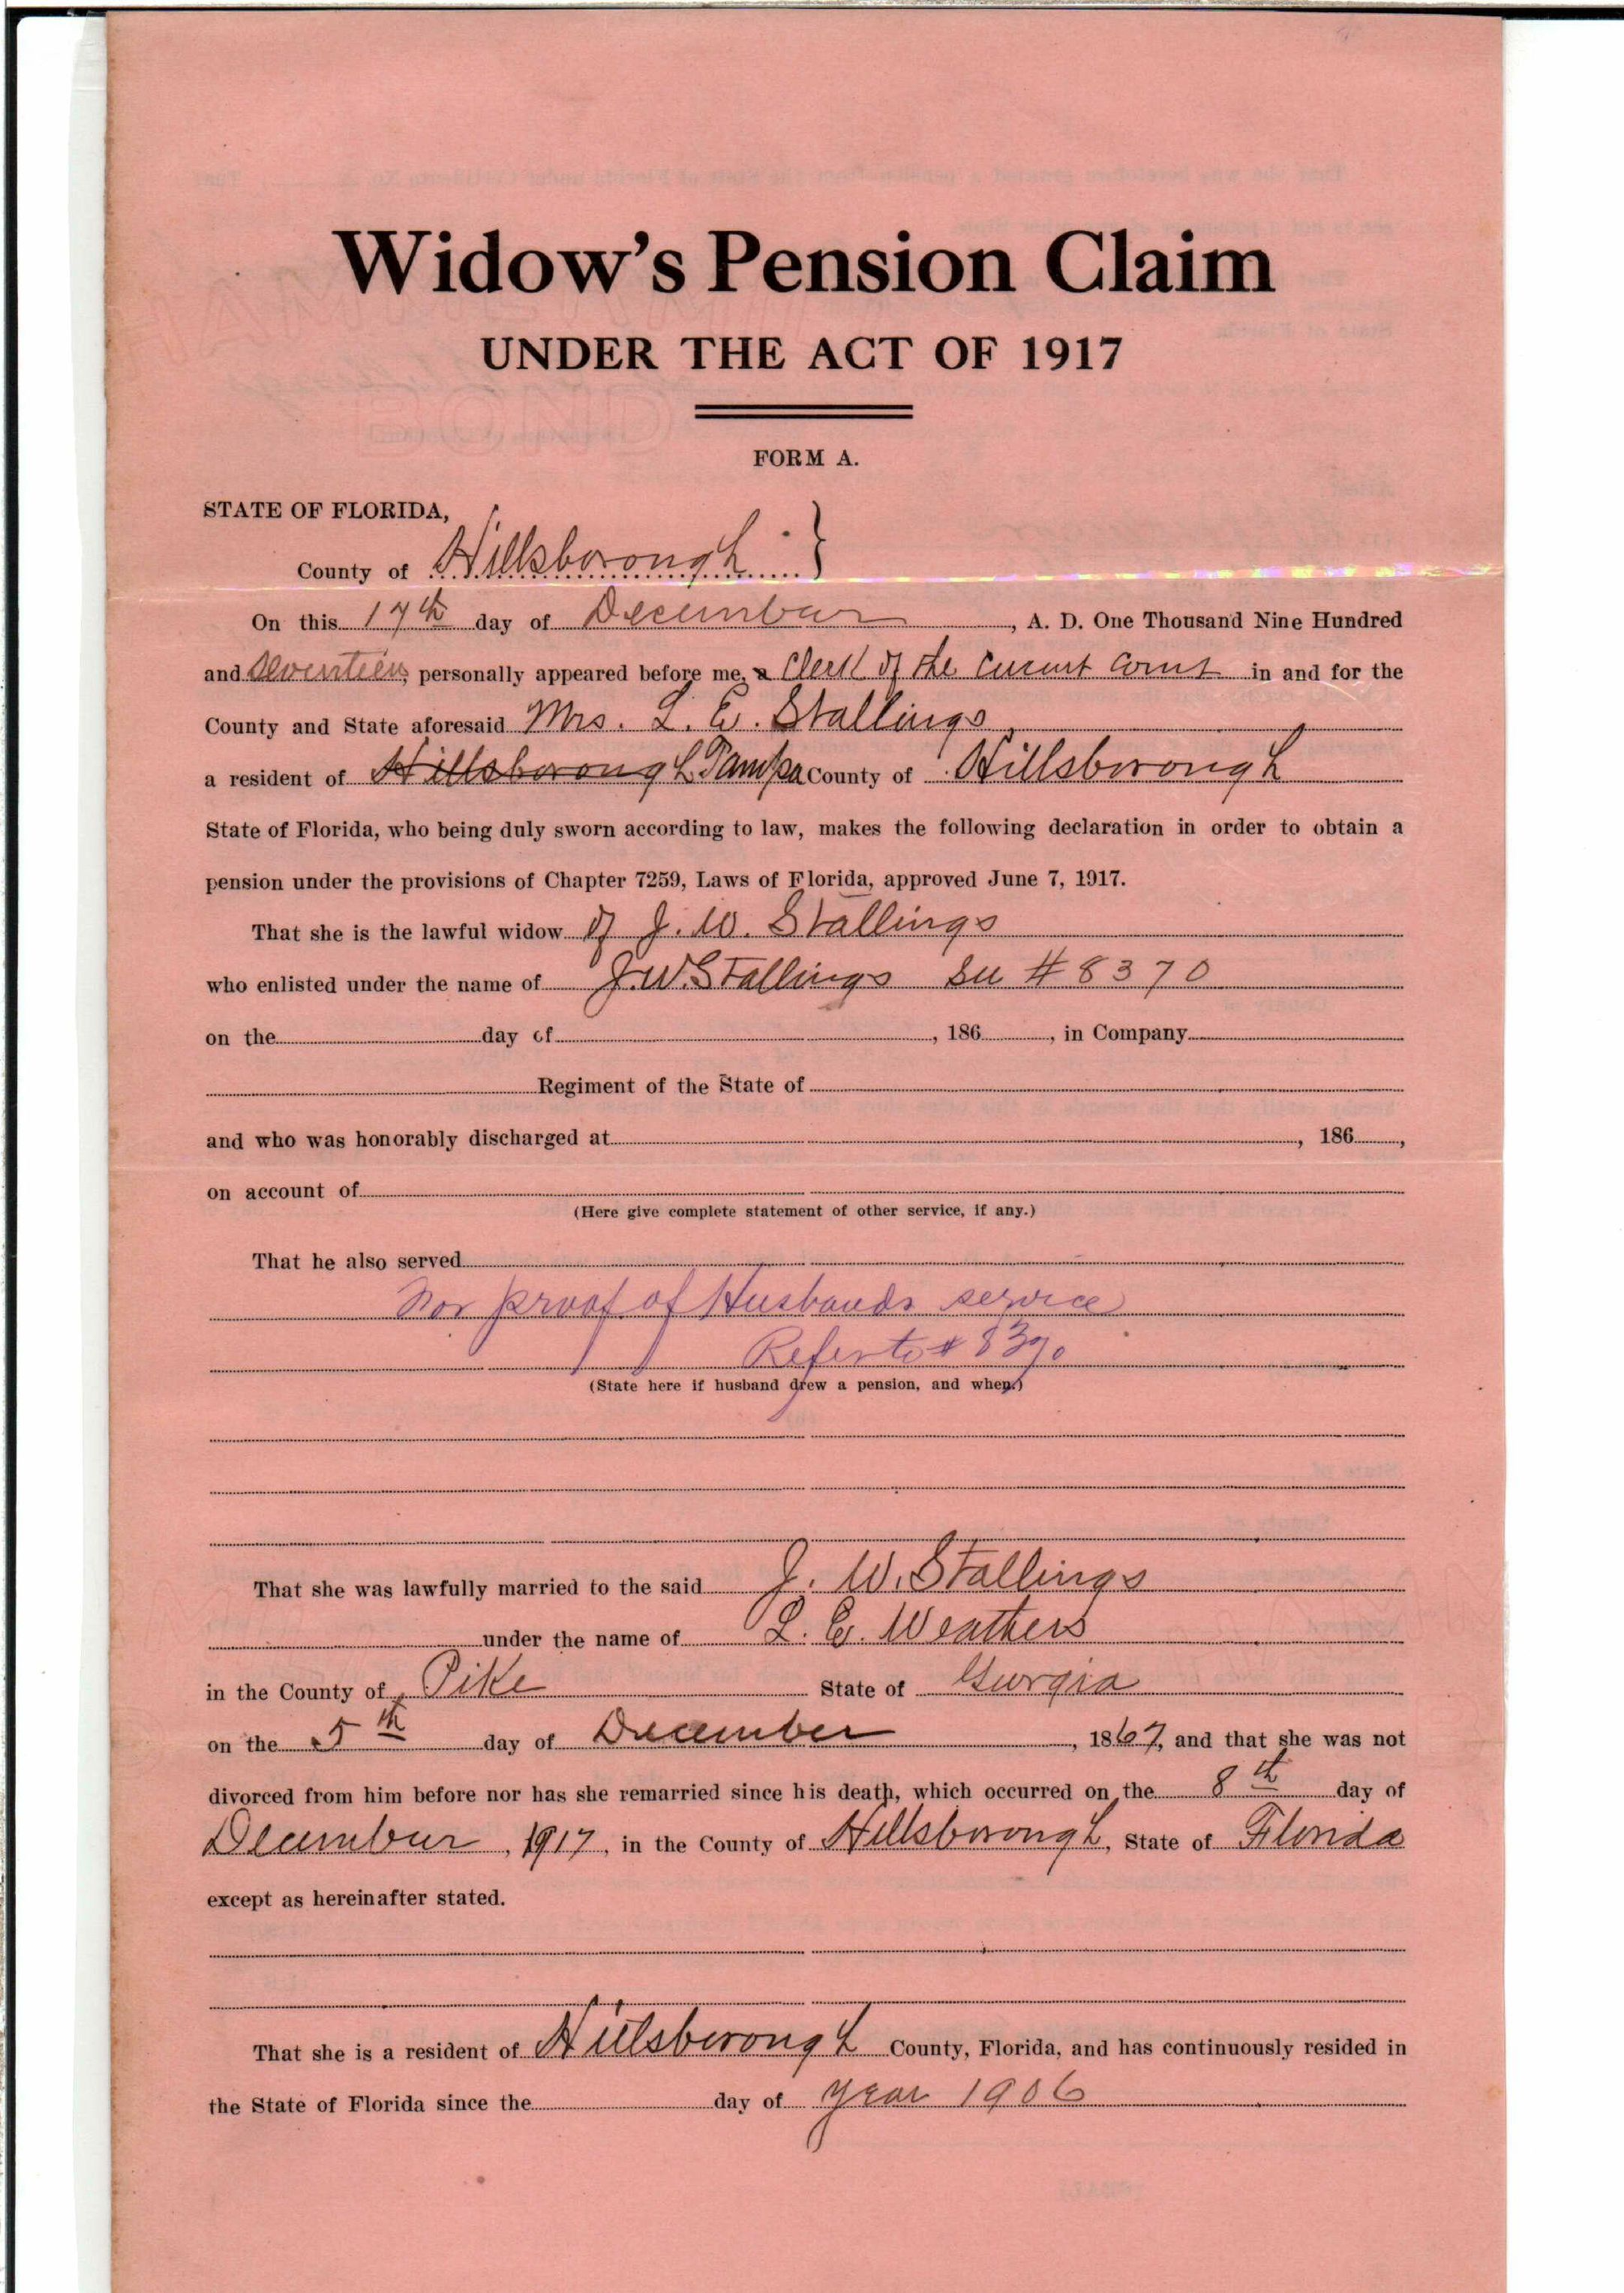 Widow's Pension Claim
UNDER THE ACT OF 1917
FORM A.
STATE OF FLORIDA,
County of Hillsborough }
On this 17th day of December, A. D. One Thousand Nine Hundred
and Seventeen, personally appeared before me, a Clerk of the Circuit Court in and for the
County and State aforesaid Mrs. L. E. Stallings
a resident of Hillsborough Tampa County of Hillsborough
State of Florida, who being duly sworn according to law, makes the following declaration in order to obtain a
pension under the provisions of Chapter 7259, Laws of Florida, approved June 7, 1917.
That she is the lawful widow of J. W. Stallings
who enlisted under the name of J. W. Stallings See # 8370
on the day of , 186 , in Company
Regiment of the State of
and who was honorably discharged at , 186 ,
on account of
(Here give complete statement of other service, if any.)
That he also served
For proof of Husbands service
Refer to # 8370
(State here if husband drew a pension, and when.)
That she was lawfully married to the said J. W. Stallings
under the name of L. E. Weathers
in the County of Pike State of Georgia
on the 5th day of December, 1867, and that she was not
divorced from him before nor has she remarried since his death, which occurred on the 8th day of
December, 1917, in the County of Hillsborough, State of Florida
except as hereinafter stated.
That she is a resident of Hillsborough County, Florida, and has continuously resided in
the State of Florida since the day of year 1906